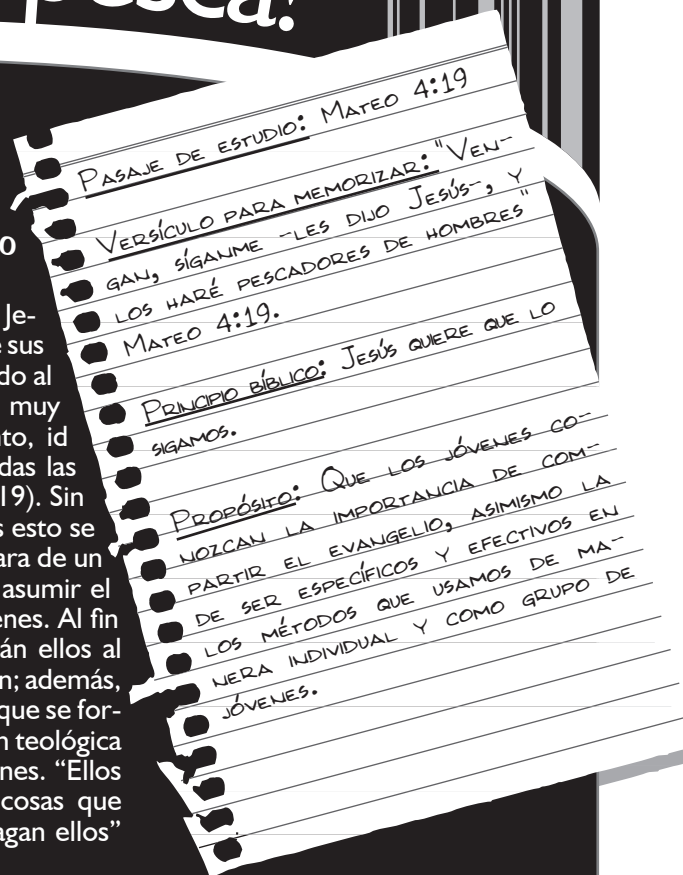 pesca!
o
Je-
e sus
do al
muy
nto, id
das las
19). Sin
s esto se
ara de un
asumir el
enes. Al fin
án ellos al
n; además,
que se for-
n teológica
nes. “Ellos
cosas que
agan ellos”
Pasaje de estudio: Mateo 4:19
Versículo para memorizar: "Ven-
gan, síganme -les dijo Jesús-, y
los haré pescadores de hombres"
Mateo 4:19.
Principio bíblico: Jesús quiere que lo
sigamos.
Propósito: Que los jóvenes co-
nozcan la importancia de com-
partir el evangelio, asimismo la
de ser específicos y efectivos en
los métodos que usamos de ma-
nera individual y como grupo de
jóvenes.